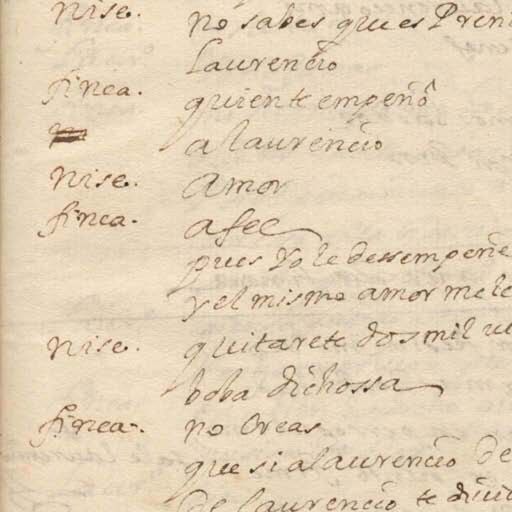 nise. no sabes que es Pren
Laurencio
finea. quien te empeño
a laurencio
nise. Amor
finea. a fee
pues yo le dessempeñe
y el mismo amor me le
nise. quitarete dos mil
boba dichossa
finea. no Creas
que si a laurencio de
de laurencio te